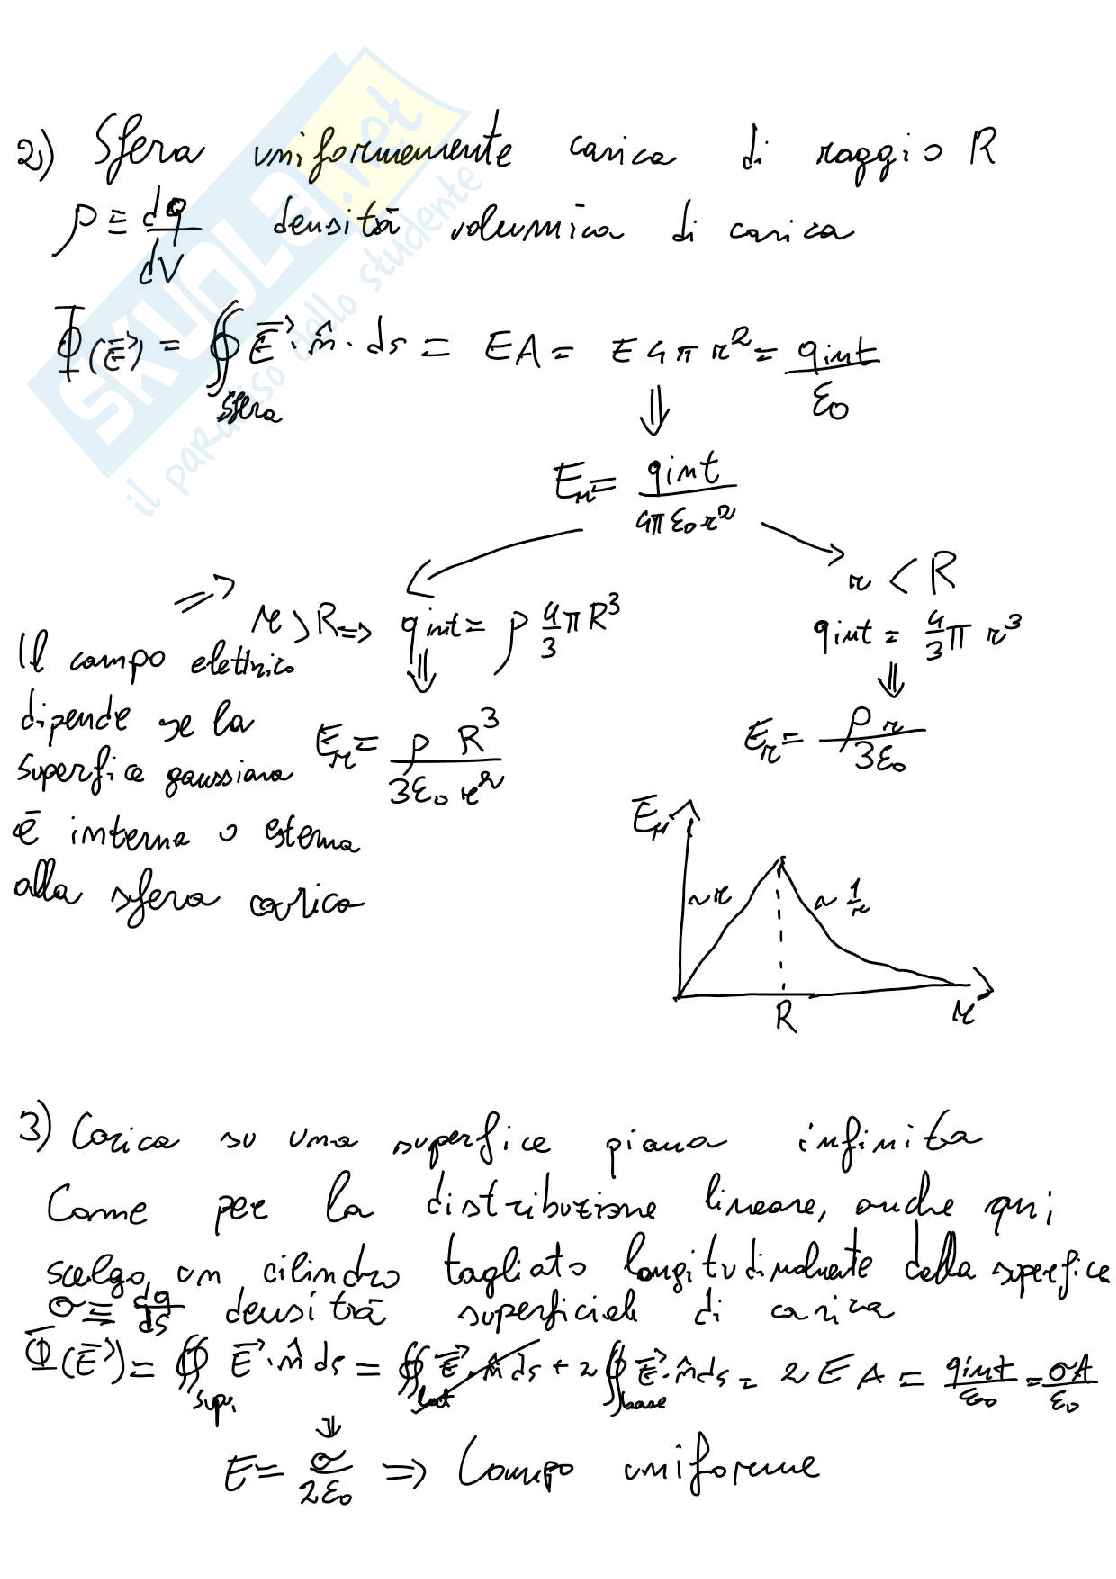 2) Sfera uniformemente carica di raggio R
ρ ≡ dq/dV densità volumica di carica
Φ(E⃗) = ∯ E⃗ · n̂ · ds = EA = E 4πr² = qint/ε₀
Sfera
⇓
Er = qint/4πε₀r²
r < R
⇒ r > R ⇒ qint = ρ 4/3 π R³
qint = 4/3 π r³
⇓ ⇓
Er = ρ R³/3ε₀ r²
Er = ρ r/3ε₀
Il campo elettrico
dipende se la
superfice gaussiana
è interna o esterna
alla sfera carica
Er
~r ~ 1/r
R r
3) Carica su una superfice piana infinita
Come per la distribuzione lineare, anche qui,
scelgo un cilindro tagliato longitudinalmente dalla superfice
σ ≡ dq/ds densità superficiale di carica
Φ(E⃗) = ∯ E⃗ · n̂ ds = ∯ E⃗ · n̂ ds + 2 ∯ E⃗ · n̂ ds = 2EA = qint/ε₀ = σA/ε₀
sup. lat base
⇓
E = σ/2ε₀ ⇒ Campo uniforme
SKUOLA.net
il paradiso dello studente